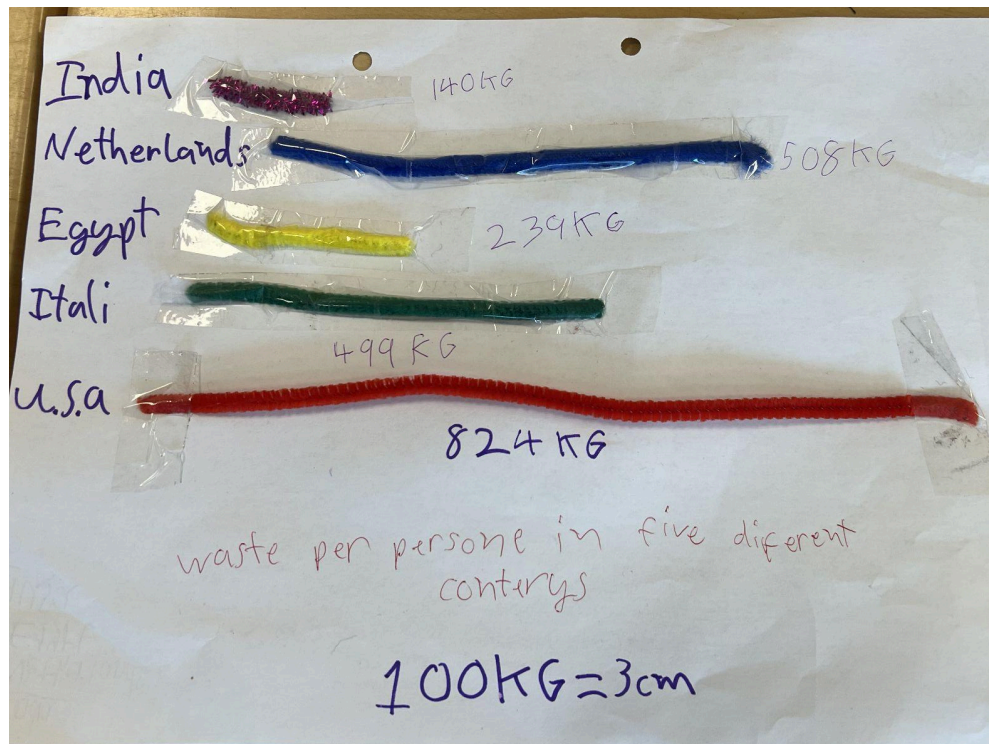 India 140KG
Netherlands 508KG
Egypt 239KG
Itali
499KG
U.S.a
824KG
waste per persone in five diferent
conterys
100KG=3cm